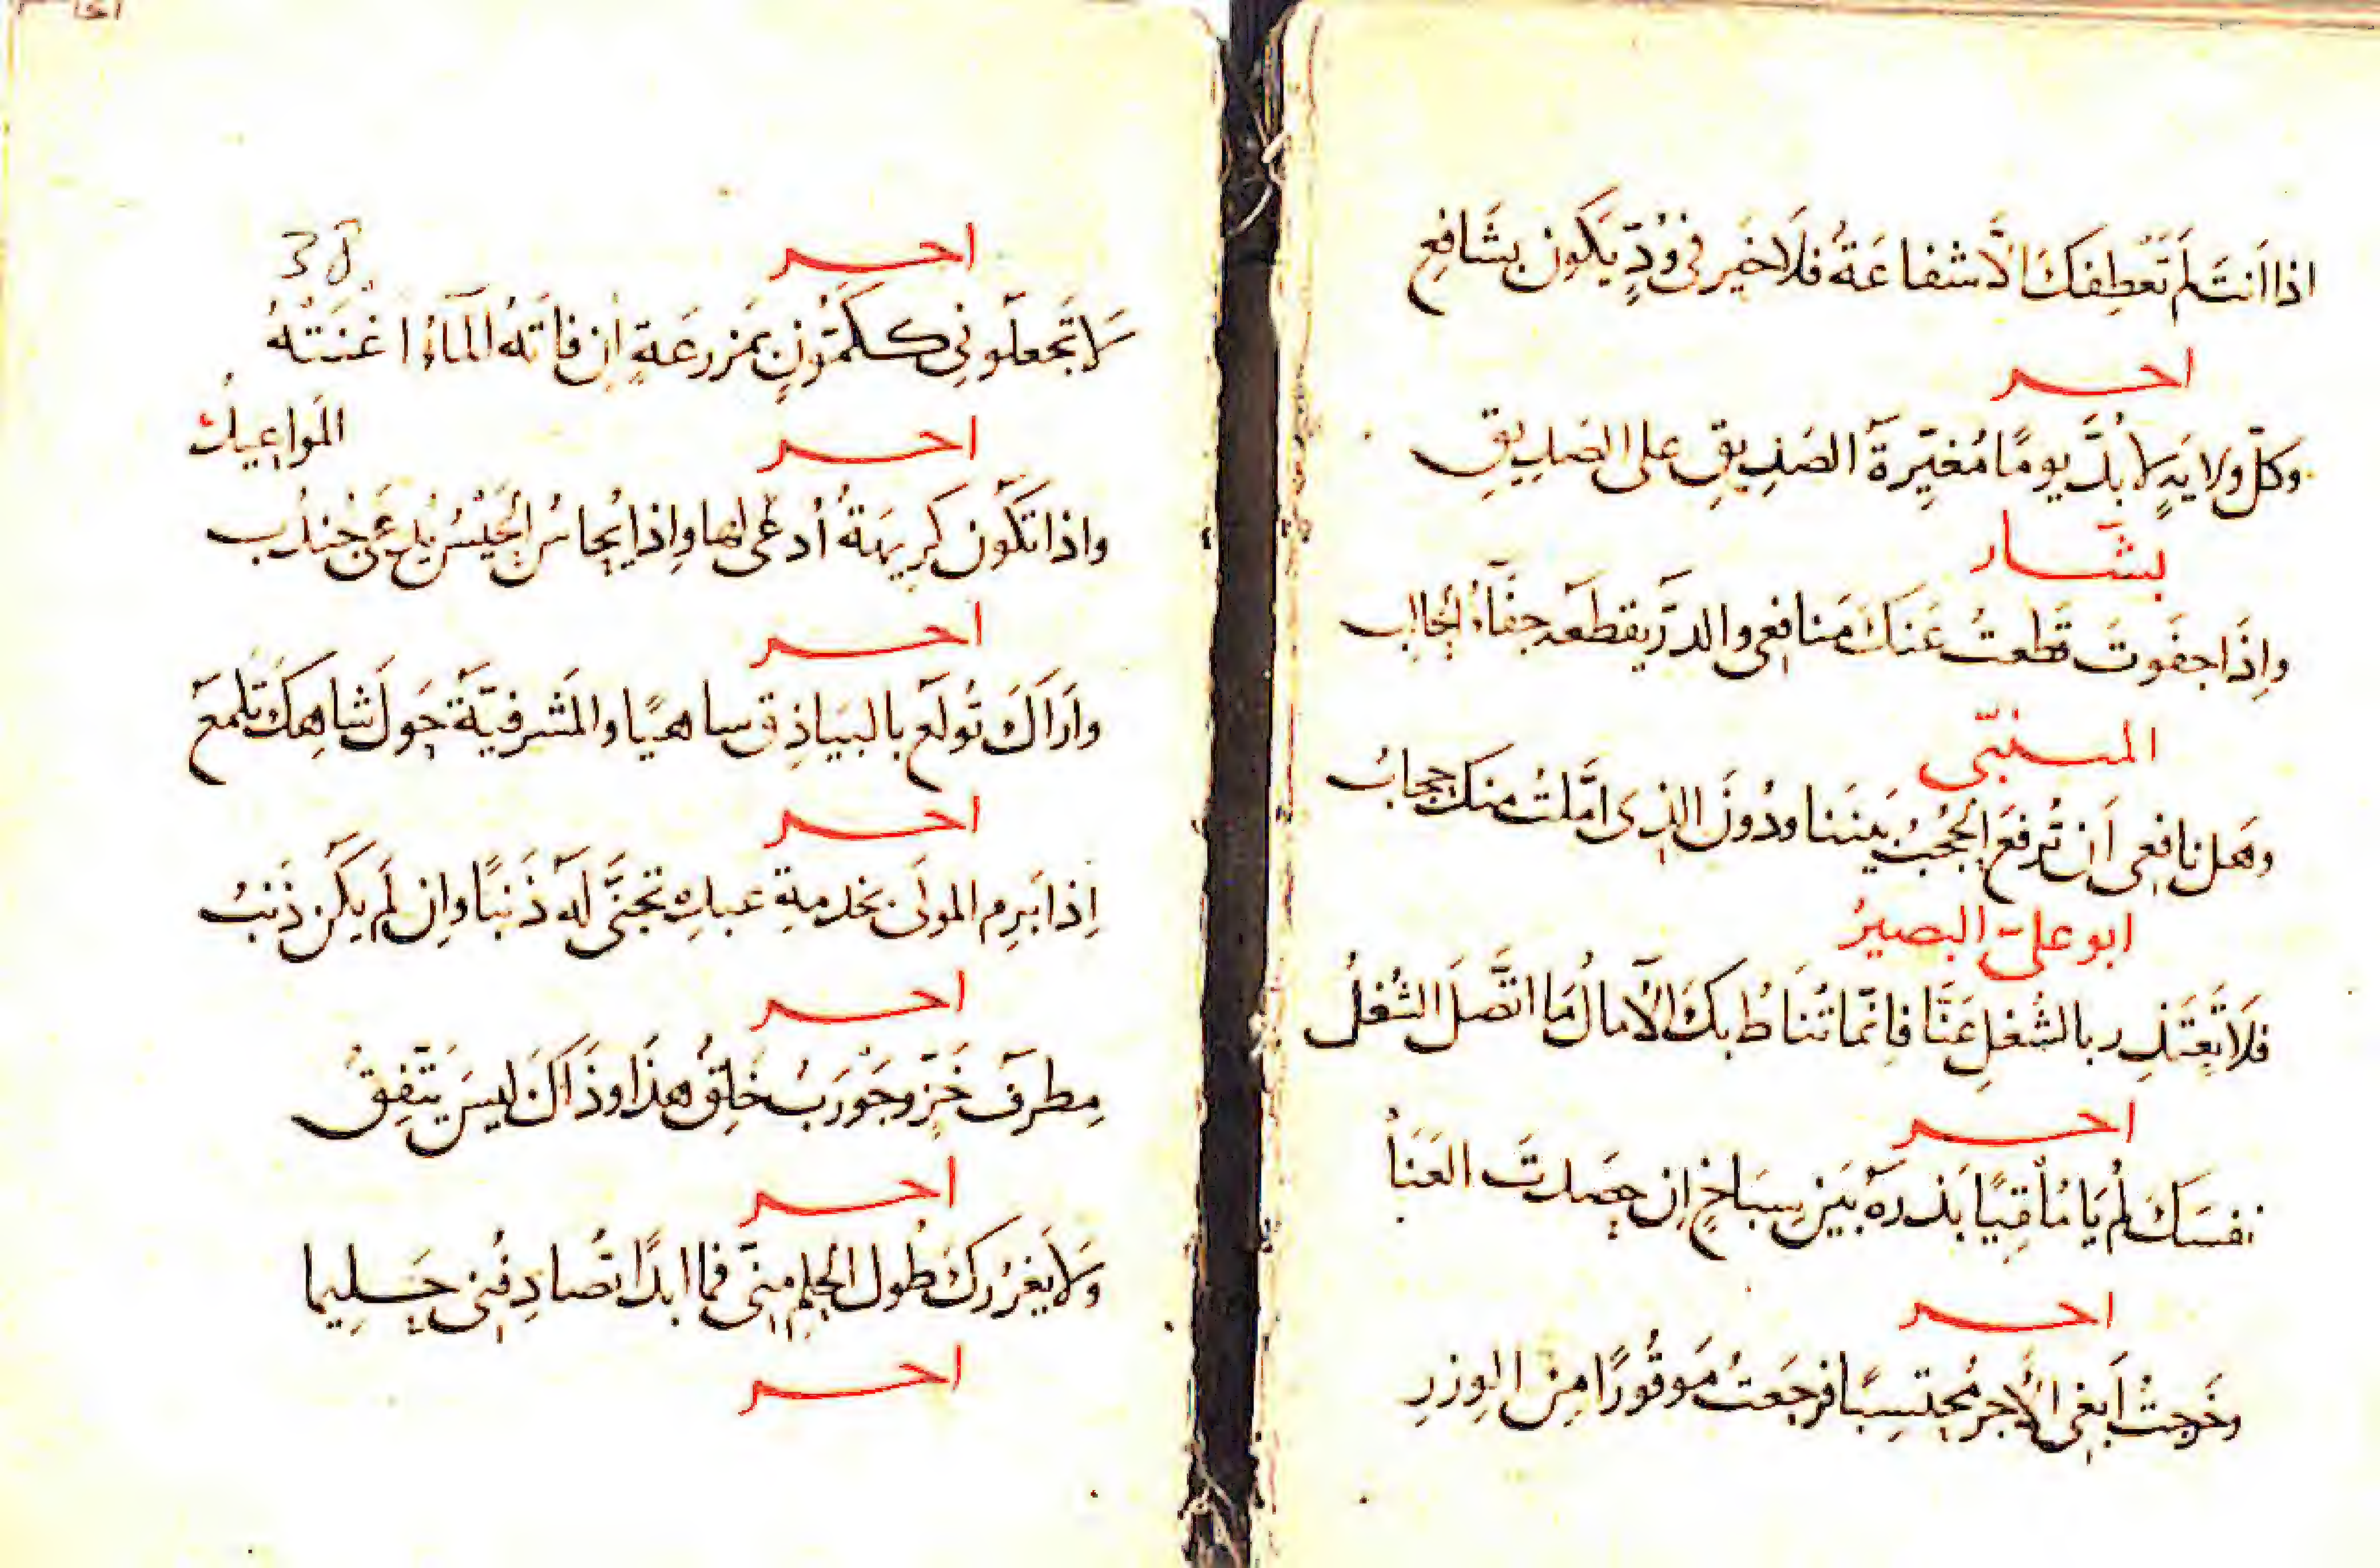 اذا انتَ لَم تَعْطِفكَ الّا شفاعَةٌ فلَا خَير فى وُدٍّ يَكون بشَافِعِ
اخر
وكلّ ولايَةٍ لا بُدَّ يومًا مُغيِّرة الصَدِيقِ على الصَدِيقِ
بشّار
واِذَا جفَوتَ قَطعتُ عَنكَ مَنافِعى والدرَّ يقطعه جفَآءُ الحَالِبِ
المتنبّى
وهَل نافعِى اَن تُرفَعَ الحُجبُ بَينَنا ودُونَ الذِى امَّلتُ منكَ حِجابُ
ابو على البصيرُ
فلَا تَعتَذِر بالشُغلِ عَنَّا فاِنّما تُنَاطُ بكَ الآمالُ مَا اتَّصَلَ الشُغلُ
اخر
نفسَكَ لُم يَا مُلْقِيًا بَذرَهُ بَين سِبَاخٍ اِن حصَدتَ العَنَأ
اخر
وخَرجتُ اَبغى الاَجر مُحتسِبًا فرجَعتُ مَوقُورًا مِنَ الوِزرِ
38
اخر
لَا تَجعلَونِى ككَمّونٍ بمَزرعَةٍ اِن فاتَهُ المَآءُ اغنَتهُ
المَواعِيدُ
اخر
واذا تكُون كرِيهَةٌ اُدعَى لهَا واِذا يُحاسُ الحَيْسُ يُدعَى جُندُب
اخر
وارَاكَ تُولَع بالبيَاذِق ساهيًا والمَشرفيّةُ حَولَ شاهِكَ تَلمعَ
اخر
اِذا بَرِم المولَى بخدمةِ عبدِهِ تجنَّى لَه ذَنبًا واِن لَم يكُن ذَنبُ
اخر
مِطرف خَزٍّ وجَورَبٌ خَلِقُ هذَا وذَاكَ لَيسَ يَتّفِقُ
اخر
ولَا يَغرُركَ طُول الحِلمِ مِنّى فما ابدًا تُصادِفُنِى حَلِيما
اخر